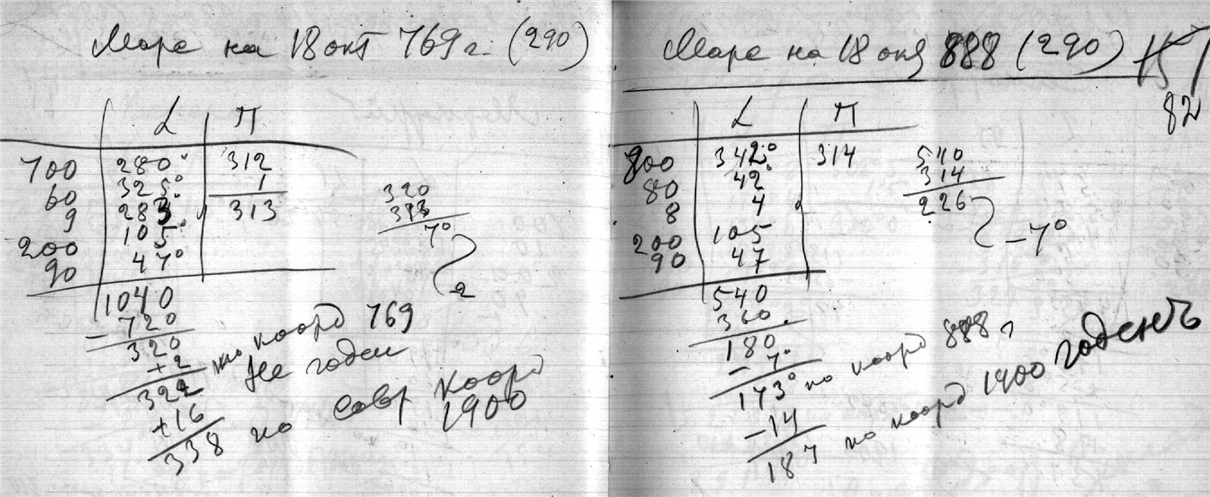 Марс на 18 окт 769 г. (290)
L П
700 280° 312
60 325° 1
9 283 313
200 105°
90 47°
1040
– 720
320
+ 2
322 по коорд 769
Не годен
+ 16
338 по совр коорд
1900
320
313
7°
2
Марс на 18 окт 888 (290)
82
L П
800 342° 314
80 42
8 4
200 105
90 47
540
360
180
– 7°
173° по коорд 888 г
– 14
187 по коорд 1900 годенъ
540
314
226
– 7°